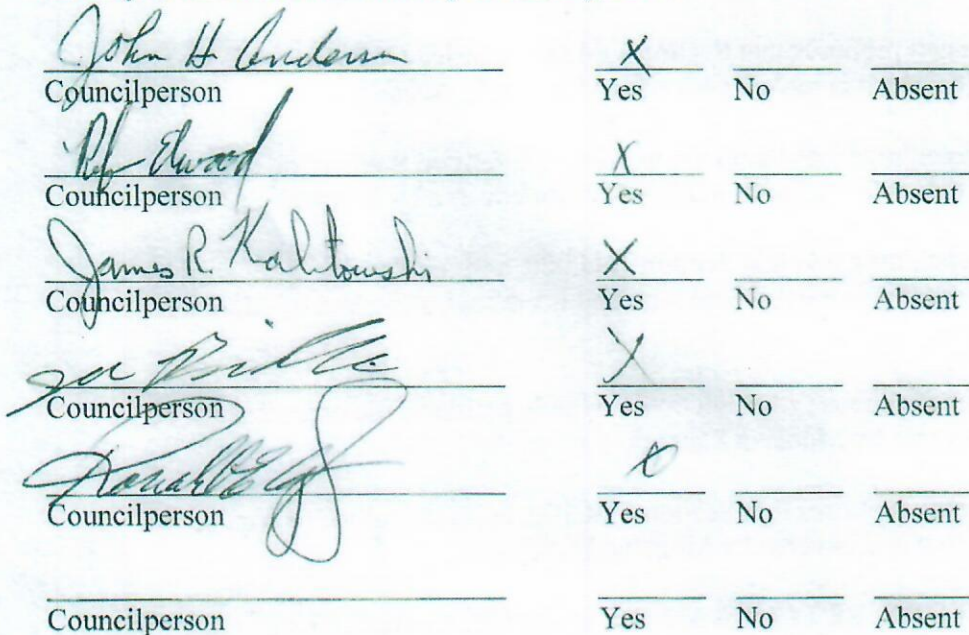 John H Anderson X
Councilperson Yes No Absent
Elwood X
Councilperson Yes No Absent
James R. X
Councilperson Yes No Absent
X
Councilperson Yes No Absent
X
Councilperson Yes No Absent
Councilperson Yes No Absent